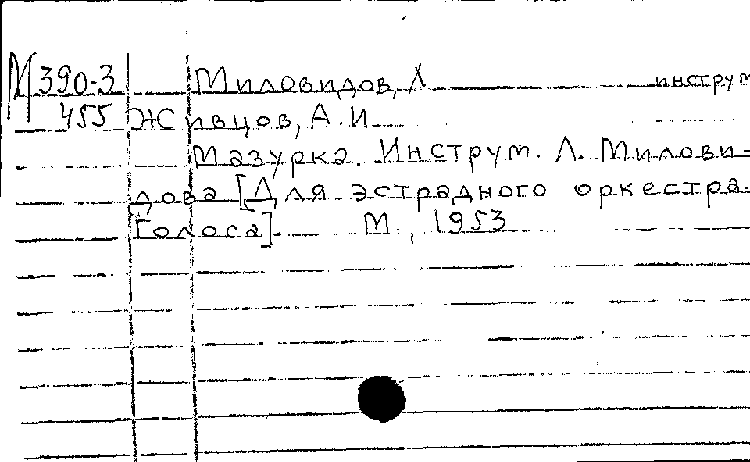 М 390-3 Миловидов, Л инструм
455 Живцов, А. И.
Мазурка. Инструм. Л. Милови-
дова [Для эстрадного оркестра
Голоса]. М., 1953